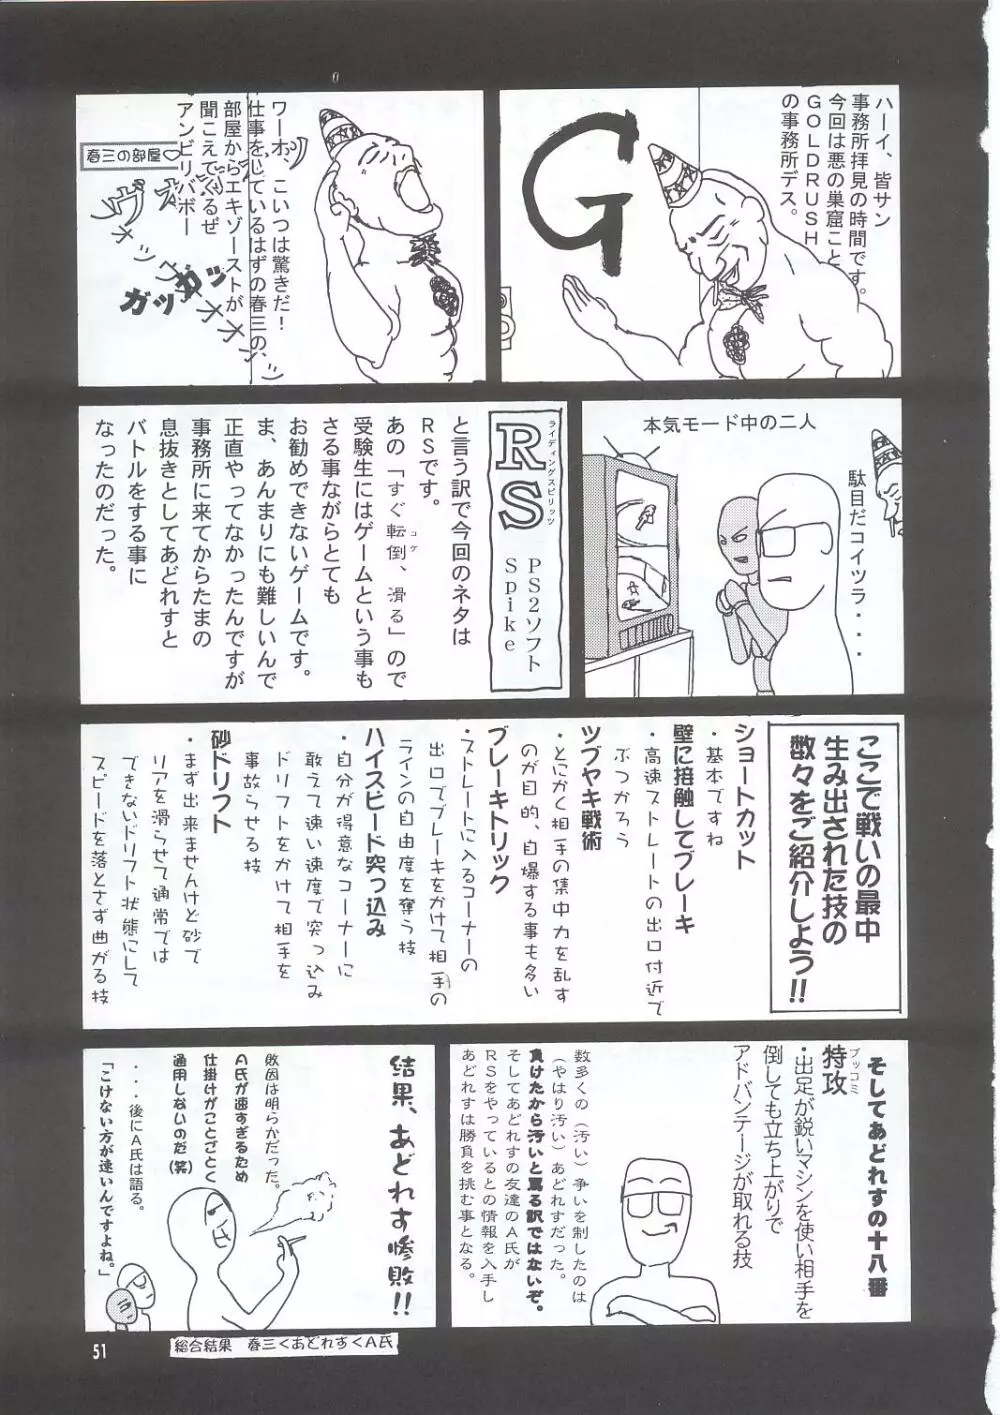 ハーイ、皆サン
事務所拝見の時間です。
今回は悪の巣窟こと
GOLDRUSH
の事務所デス。
G
ワーオ、こいつは驚きだ！
仕事をしているはずの春三の、
部屋からエキゾーストが
聞こえてくるぜ
アンビリバボー
春三の部屋♡
ヴォオオンッ
ヴォンッヴォオオンッ
ガッガッ
本気モード中の二人
駄目だコイツラ・・・
ライディングスピリッツ
RS
PS2ソフト
Spike
と言う訳で今回のネタは
RSです。
あの「すぐ転倒、滑る」ので
コケ
受験生にはゲームという事も
さる事ながらとても
お勧めできないゲームです。
ま、あんまりにも難しいんで
正直やってなかったんですが
事務所に来てからたまの
息抜きとしてあどれすと
バトルをする事に
なったのだった。
ここで戦いの最中
生み出された技の
数々をご紹介しよう!!
ショートカット
・基本ですね
壁に接触してブレーキ
・高速ストレートの出口付近で
ぶつかろう
ツブヤキ戦術
・とにかく相手の集中力を乱す
のが目的、自爆する事も多い
ブレーキトリック
・ストレートに入るコーナーの
出口でブレーキをかけて相手の
ラインの自由度を奪う技
ハイスピード突っ込み
・自分が得意なコーナーに
敢えて速い速度で突っ込み
ドリフトをかけて相手を
事故らせる技
砂ドリフト
・まず出来ませんけど砂で
リアを滑らせて通常では
できないドリフト状態にして
スピードを落とさず曲がる技
そしてあどれすの十八番
特攻
ブッコミ
・出足が鋭いマシンを使い相手を
倒しても立ち上がりで
アドバンテージが取れる技
数多くの（汚い）争いを制したのは
（やはり汚い）あどれすだった。
負けたから汚いと罵る訳ではないぞ。
そしてあどれすの友達のA氏が
RSをやっているとの情報を入手し
あどれすは勝負を挑む事となる。
結果、あどれす惨敗!!
敗因は明らかだった。
A氏が速すぎるため
仕掛けがことごとく
通用しないのだ（笑）
・・・後にA氏は語る。
「こけない方が速いんですよね。」
総合結果　春三くあどれすくA氏
51